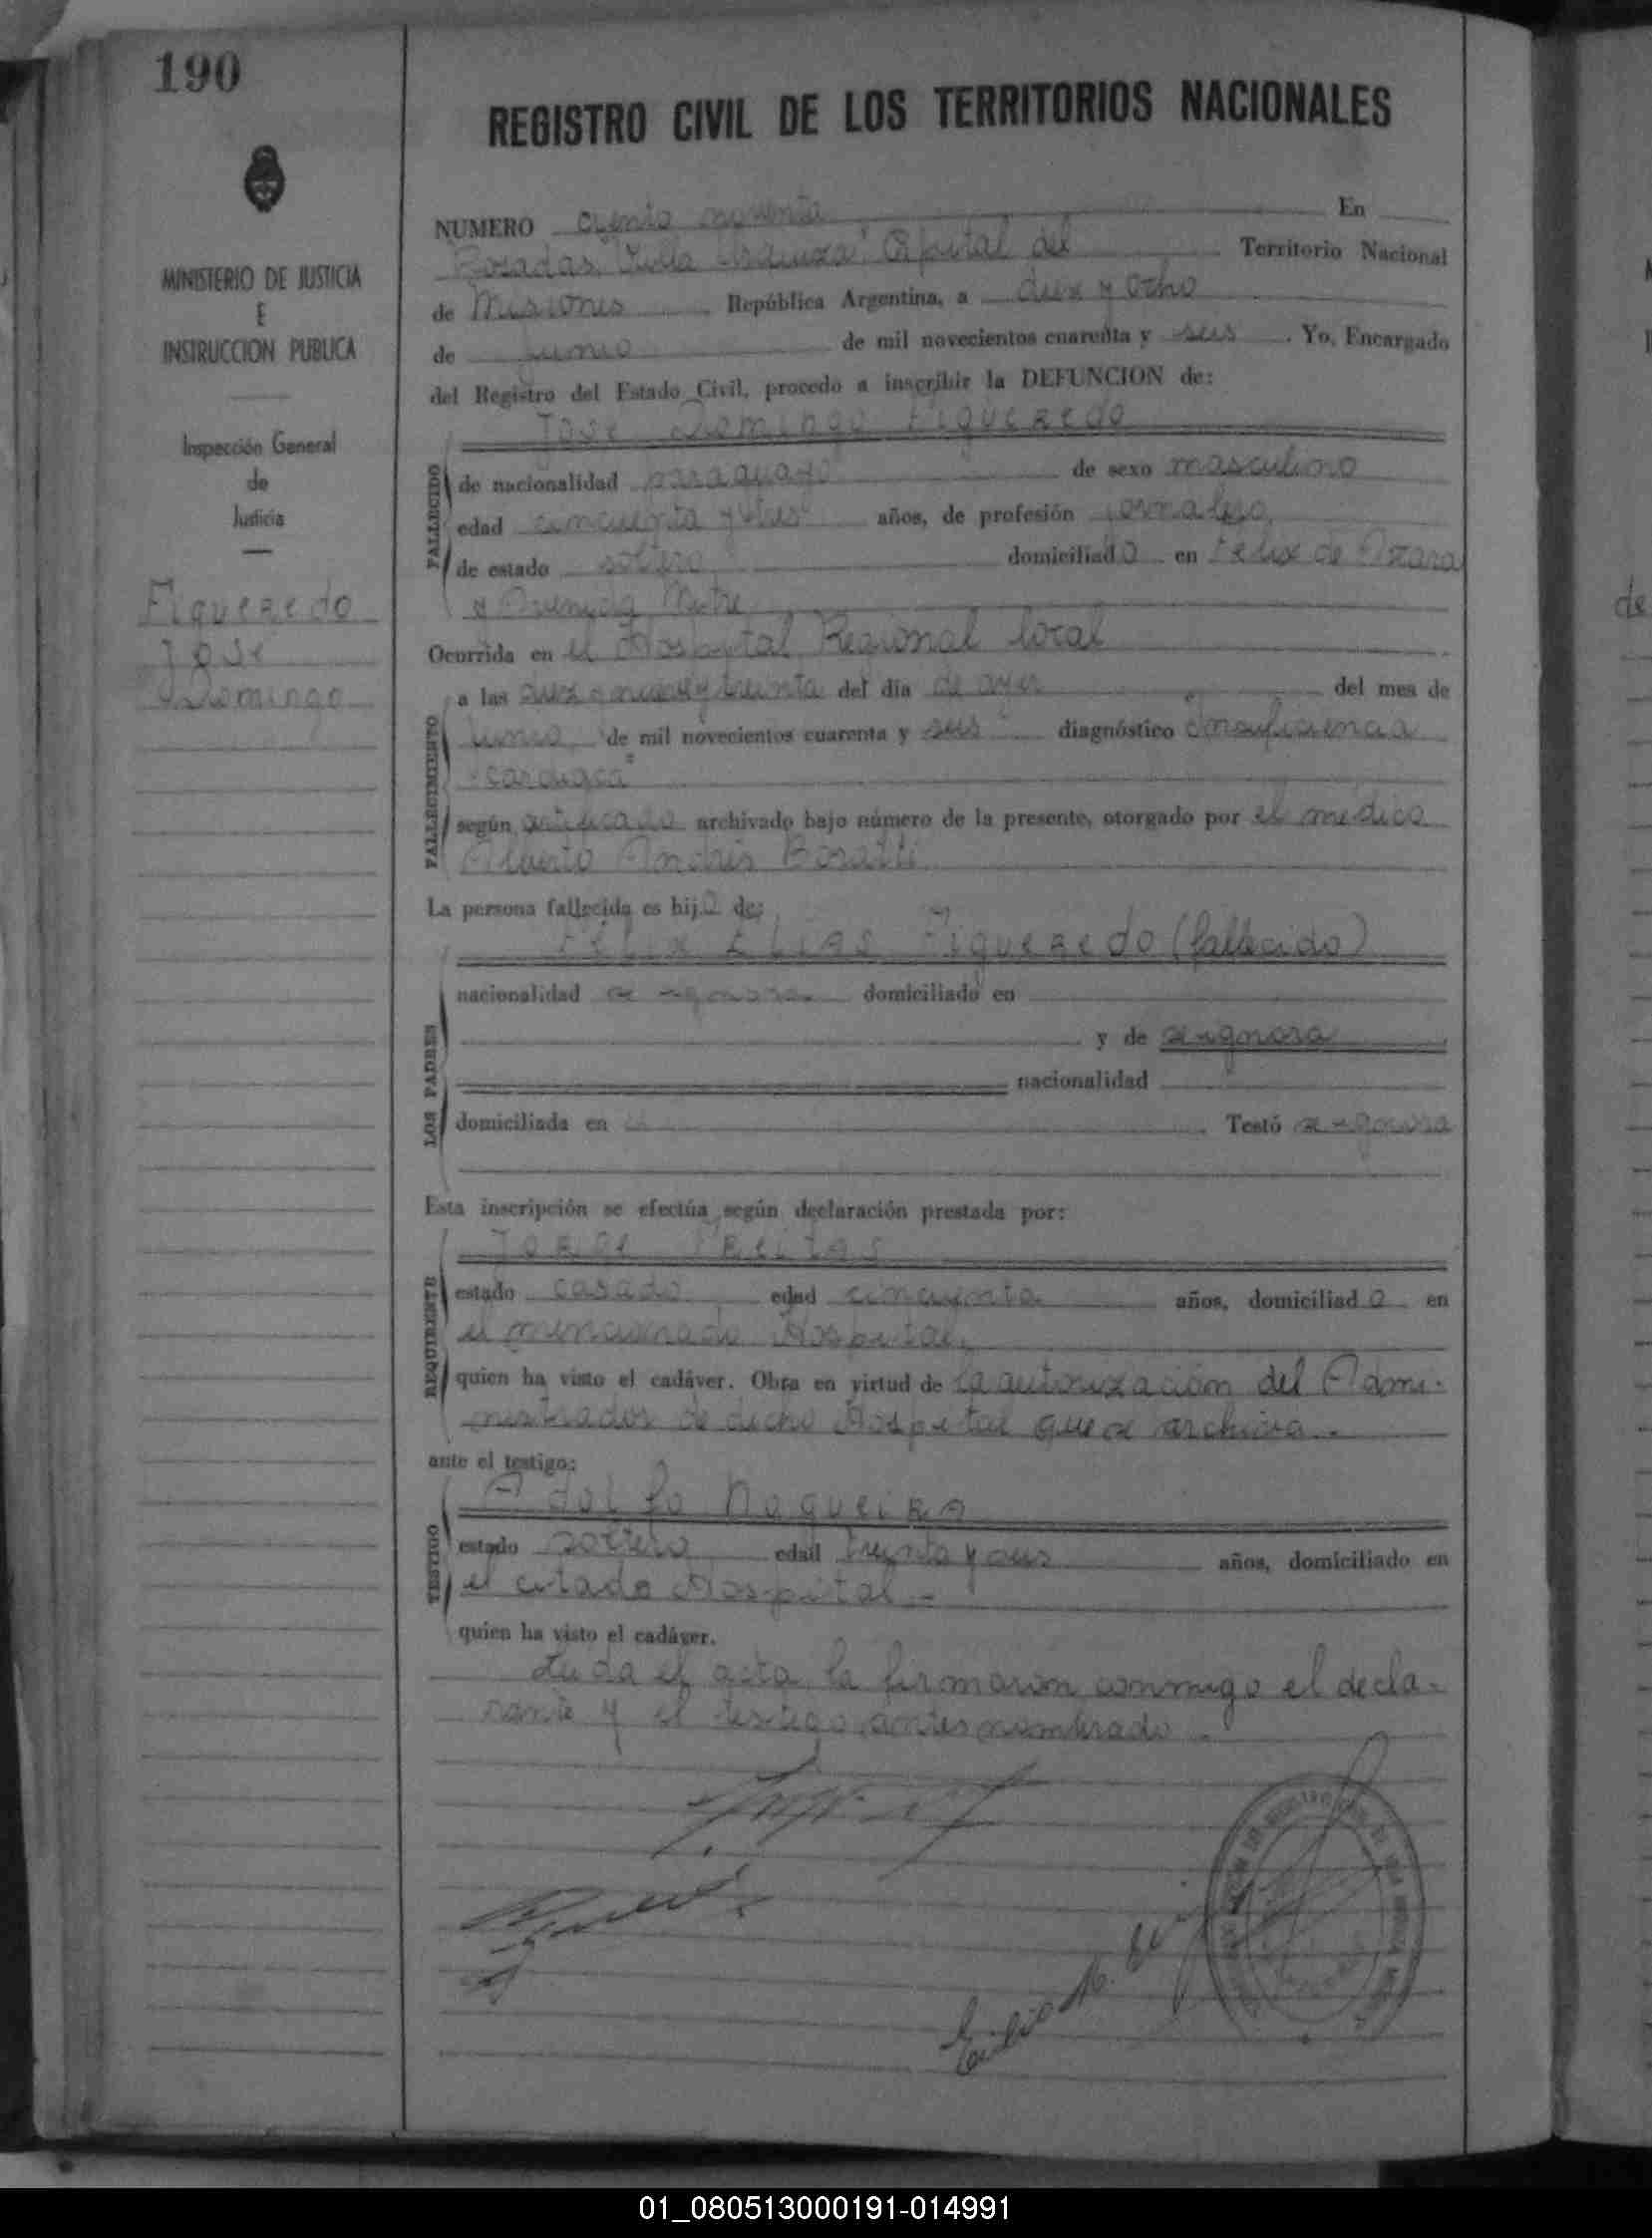 190
REGISTRO CIVIL DE LOS TERRITORIOS NACIONALES
MINISTERIO DE JUSTICIA
E
INSTRUCCION PUBLICA
Inspección General
de
Justicia
Figueredo
José
Domingo
NUMERO ciento noventa En
Posadas "Villa Urquiza" Capital del Territorio Nacional
de Misiones República Argentina, a diez y ocho
de junio de mil novecientos cuarenta y seis . Yo, Encargado
del Registro del Estado Civil, procedo a inscribir la DEFUNCION de:
José Domingo Figueredo
FALLECIDO
de nacionalidad paraguayo de sexo masculino
edad cincuenta y tres años, de profesión jornalero
de estado soltero domiciliado en Felix de Azara
y Avenida Mitre
Ocurrida en el Hospital Regional local
FALLECIMIENTO
a las diez y nueve y treinta del día de ayer del mes de
junio de mil novecientos cuarenta y seis diagnóstico "Insuficiencia
cardiaca"
según certificado archivado bajo número de la presente, otorgado por el medico
Alberto Andrés
La persona fallecida es hijo de:
LOS PADRES
Felix Elias Figueredo (fallecido)
nacionalidad se ignora domiciliado en
y de se ignora
nacionalidad
domiciliada en Testó se ignora
Esta inscripción se efectúa según declaración prestada por:
REQUIRENTE
Jorge
estado casado edad cincuenta años, domiciliado en
el mencionado Hospital
quien ha visto el cadáver. Obra en virtud de la autorización del Admi-
nistrador de dicho Hospital que se archiva.-
ante el testigo:
TESTIGO
Adolfo Nogueira
estado soltero edad treinta y seis años, domiciliado en
el citado Hospital.-
quien ha visto el cadáver.
Leida el acta, la firmaron conmigo el decla-
rante y el testigo antes nombrado.-
Emilio M.
01_080513000191-014991